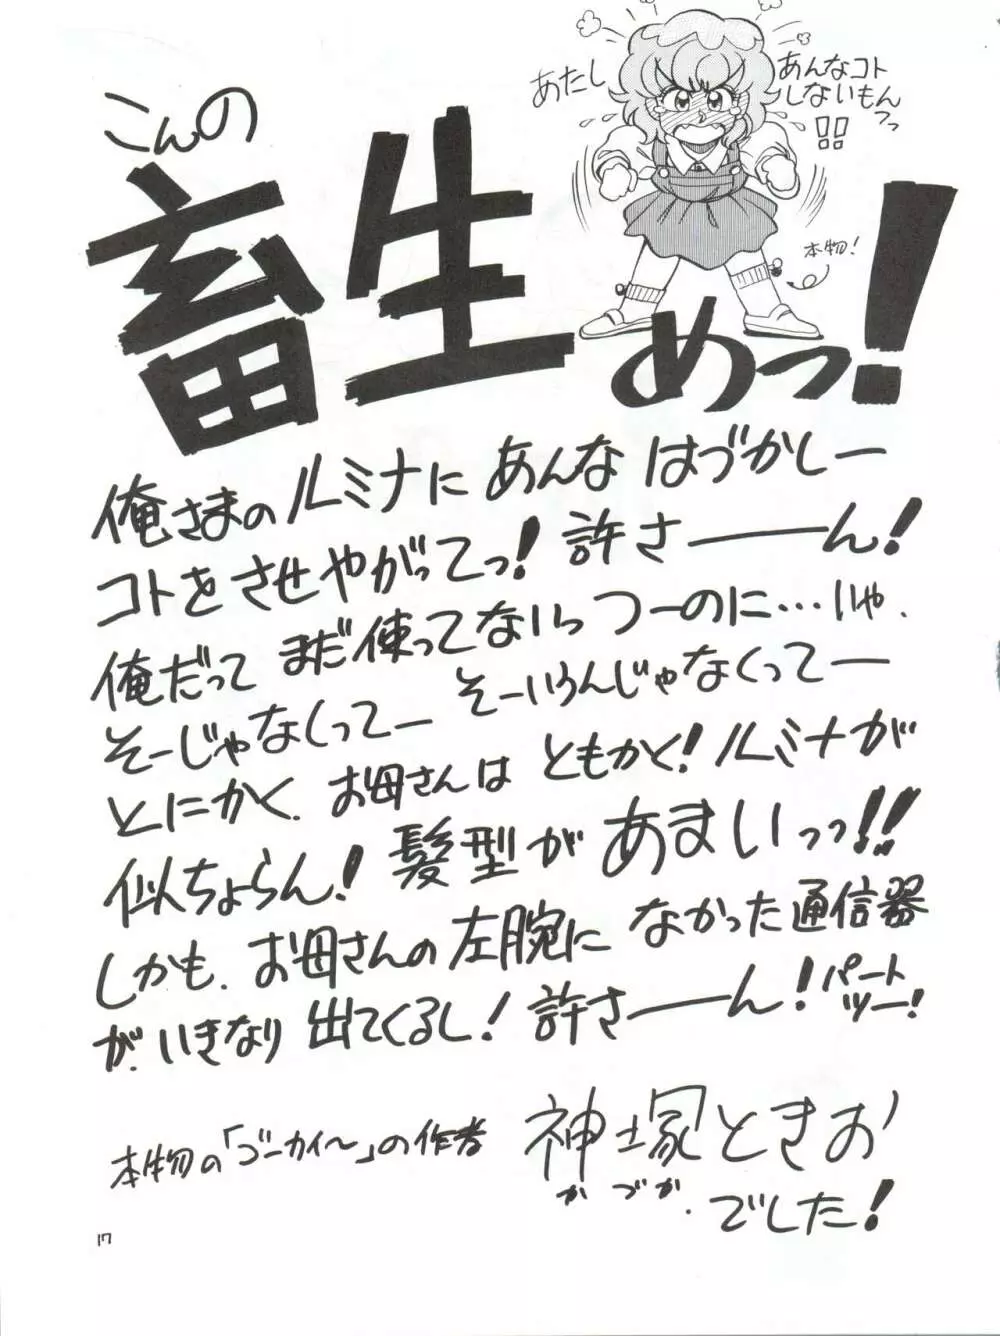 こんの
畜生
めっ!
あたし
あんなコト
しないもんっっ
!!
本物!
俺さまのルミナにあんなはづかしー
コトをさせやがってっ!許さーーん!
俺だってまだ使ってないっつーのに…いや、
そーじゃなくってーそーいうんじゃなくってー
とにかく、お母さんはともかく!ルミナが
似ちょらん!髪型があまいっっ!!
しかも、お母さんの左腕になかった通信器
が、いきなり出てくるし!許さーーん!パート
ツー!
本物の「ゴーカイ〜」の作者
神塚ときお
かづか.
でした!
17